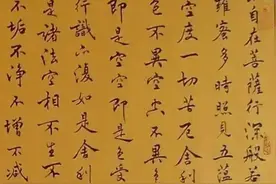 自在菩薩行深般若
羅蜜多時照見五蘊
空度一切苦厄舍利
色不異空空不異色
即是空空即是色受
行識亦復如是舍利
是諸法空相不生不
不垢不淨不增不減